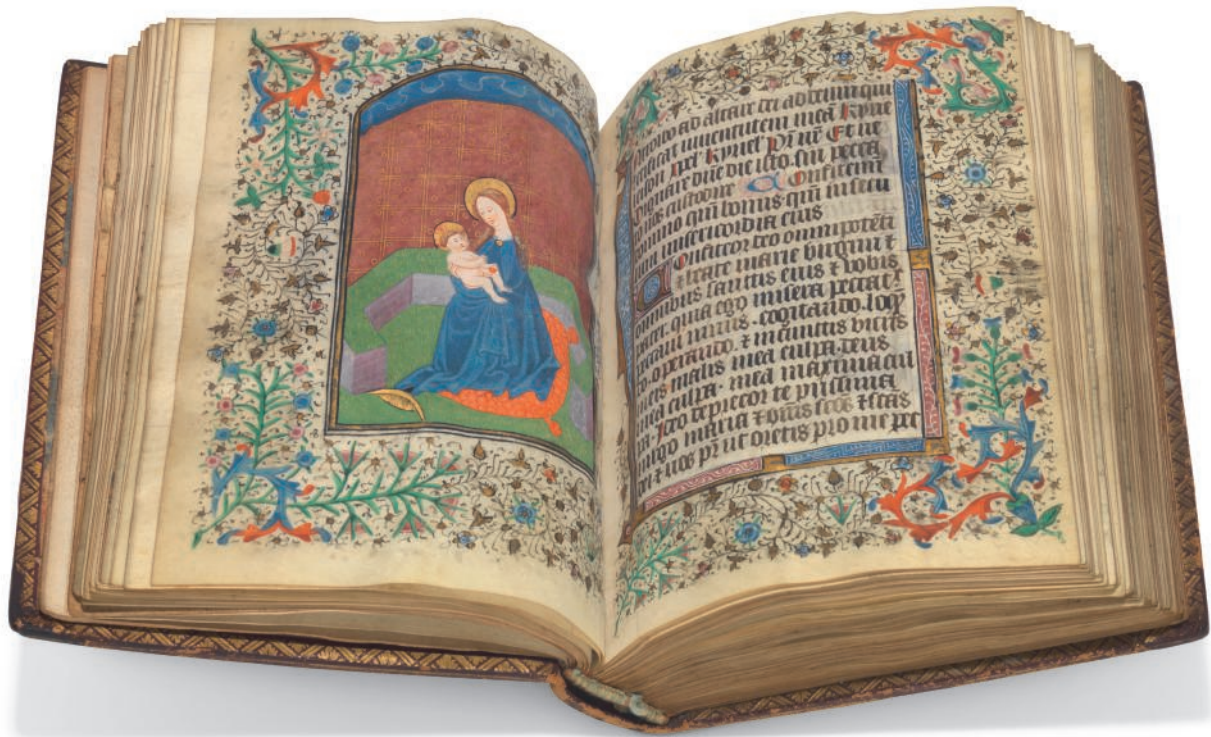 ntroibo ad altare dei ad deum qui
letificat iuuentutem meā Kyrie
leison Xpel' Kyriel' Pr̄ nr̄ Et ne
Dignare dn̄e die isto. sin pecca
to nos custodire Confitemi
domino qui bonus. qm̄ in secu
lum misericordia eius
Confiteor deo omnipotēti
beate marie virgini &
omnibus sanctis eius & vobis
pater. quia ego misera peccat
peccaui nimis. cogitando. loq̄
do. operando. & in cunctis viciis
meis malis mea culpa. deus
mea culpa. mea maxima cul
pa. Ideo te precor te piissima
virgo maria & om̄s scōs & scās
dei & vos pr̄ ut oretis pro me pec